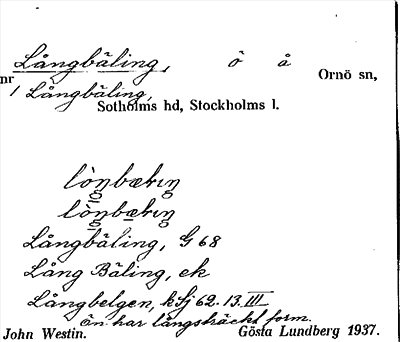 Långbäling, ö å Ornö sn,
nr
1 Långbäling,
Sotholms hd, Stockholms l.
lòŋbælıŋ
lòŋbælıŋ
Långbäling, G 68
Lång Bäling, ek
Långbelgen, kSj 62. 13. III
Ön har långsträckt form.
John Westin. Gösta Lundberg 1937.